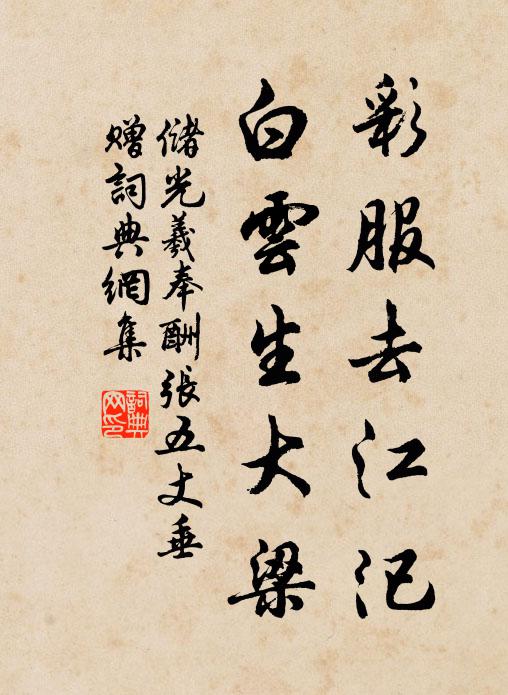 彩服去江汜
白雲生大梁
儲光羲奉酬張五丈垂
贈詞典網集
詞典网印